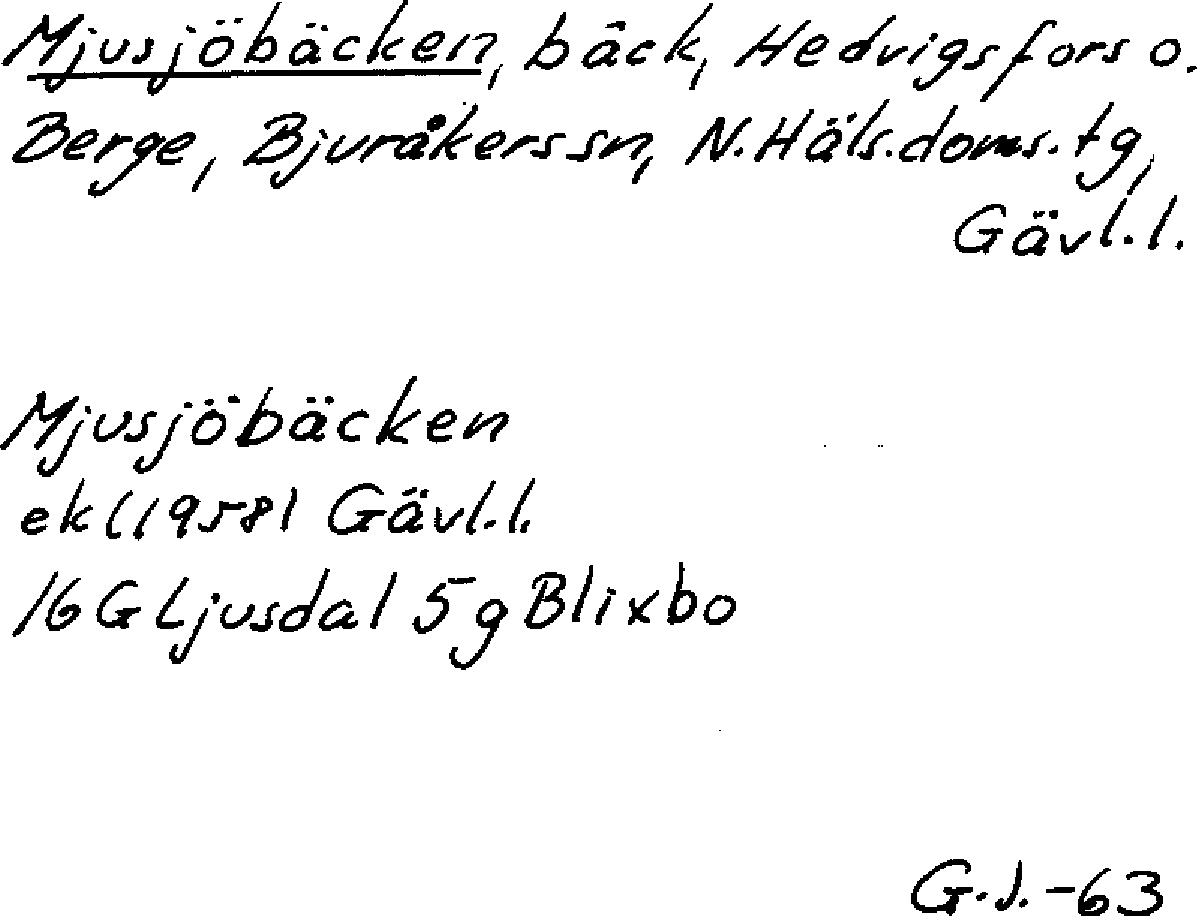 Mjusjöbäcken, bäck, Hedvigsfors o.
Berge, Bjuråkers sn, N. Häls. doms. tg,
Gävl. l.
Mjusjöbäcken
ek (1958) Gävl. l.
16 G Ljusdal 5 g Blixbo
G.J. -63